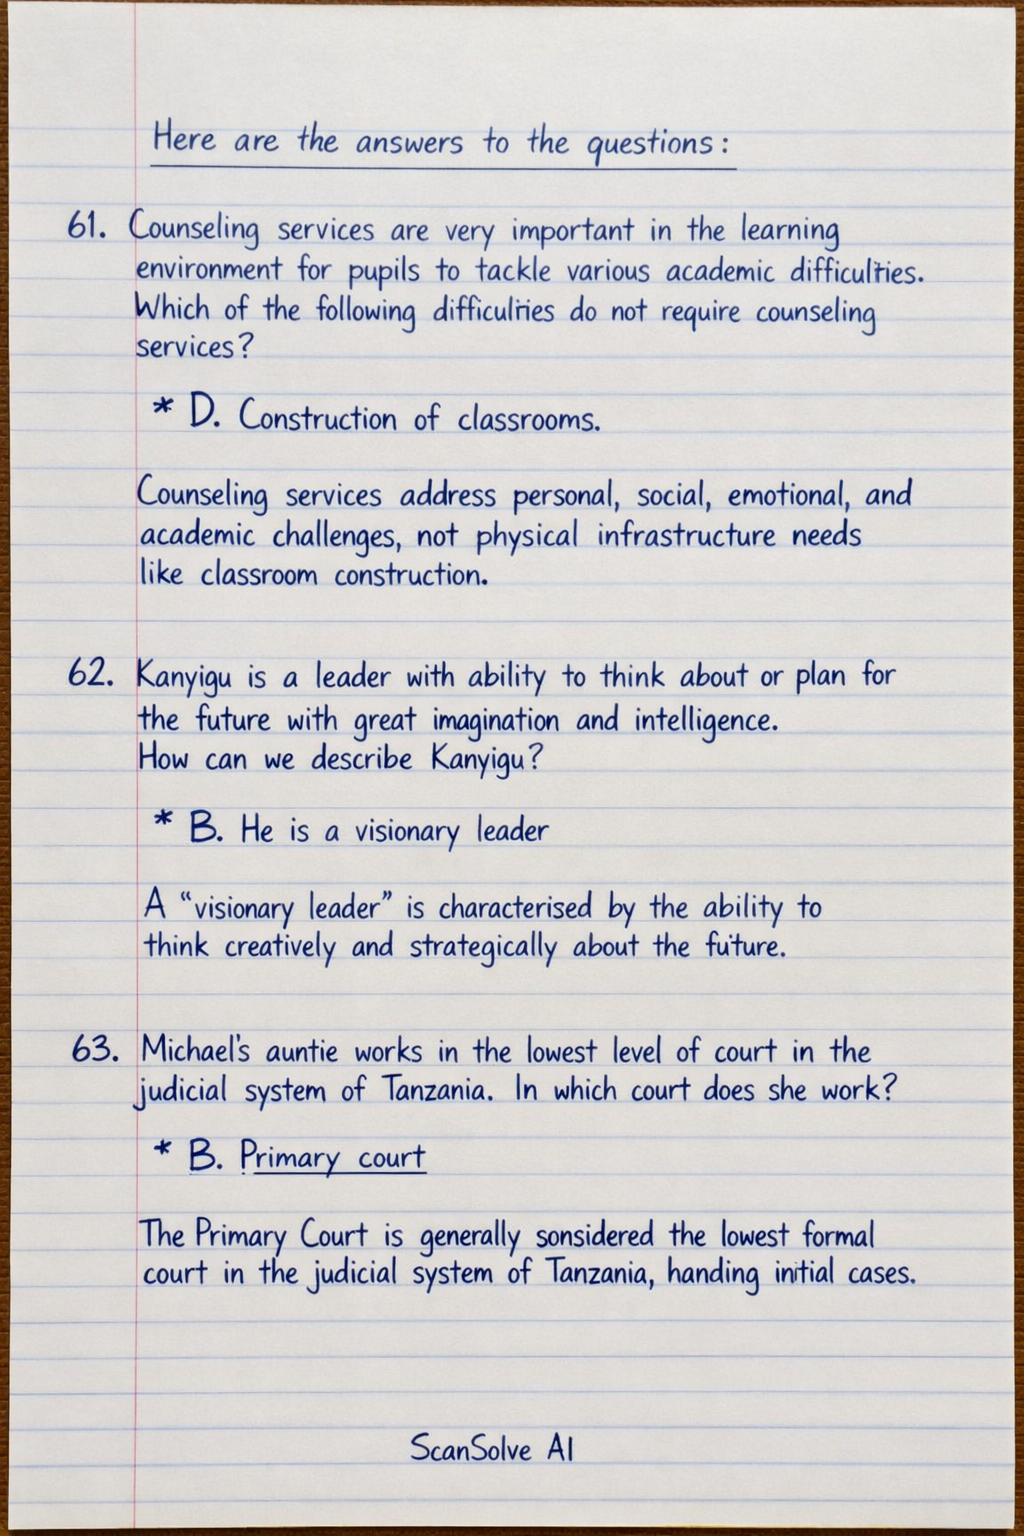 Here are the answers to the questions:
61. Counseling services are very important in the learning
environment for pupils to tackle various academic difficulties.
Which of the following difficulties do not require counseling
services?
* D. Construction of classrooms.
Counseling services address personal, social, emotional, and
academic challenges, not physical infrastructure needs
like classroom construction.
62. Kanyigu is a leader with ability to think about or plan for
the future with great imagination and intelligence.
How can we describe Kanyigu?
* B. He is a visionary leader
A “visionary leader” is characterised by the ability to
think creatively and strategically about the future.
63. Michael's auntie works in the lowest level of court in the
judicial system of Tanzania. In which court does she work?
* B. Primary court
The Primary Court is generally sonsidered the lowest formal
court in the judicial system of Tanzania, handing initial cases.
ScanSolve AI